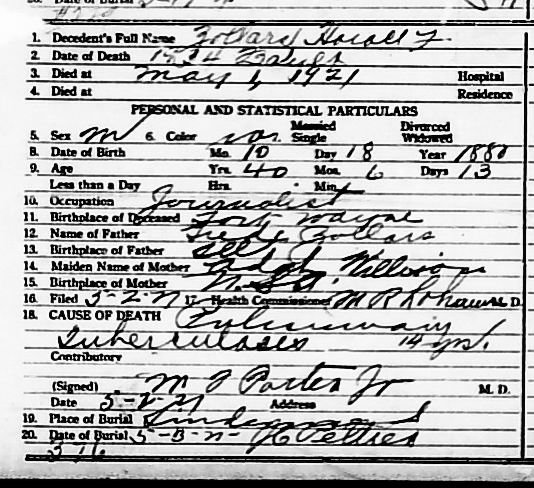 1. Decedent's Full Name Zollars Howell F.
2. Date of Death 1924
3. Died at May 1, 1921 Hospital
4. Died at Residence
PERSONAL AND STATISTICAL PARTICULARS
5. Sex M 6. Color Married Single Divorced Widowed
8. Date of Birth Mo. 10 Day 18 Year 1880
9. Age Yrs. 40 Mos. 6 Days 13
Less than a Day Hrs. Min.
10. Occupation Journalist
11. Birthplace of Deceased Fort Wayne
12. Name of Father Fred Zollars
13. Birthplace of Father
14. Maiden Name of Mother
15. Birthplace of Mother
16. Filed 5-2-21 17. Health Commissioner M. D.
18. CAUSE OF DEATH Pulmonary
Tuberculoses 14 yrs.
Contributory
(Signed) M F Porter Jr M. D.
Date 5-2-21 Address
19. Place of Burial Lindenwood
20. Date of Burial 5-3-21- Peltier